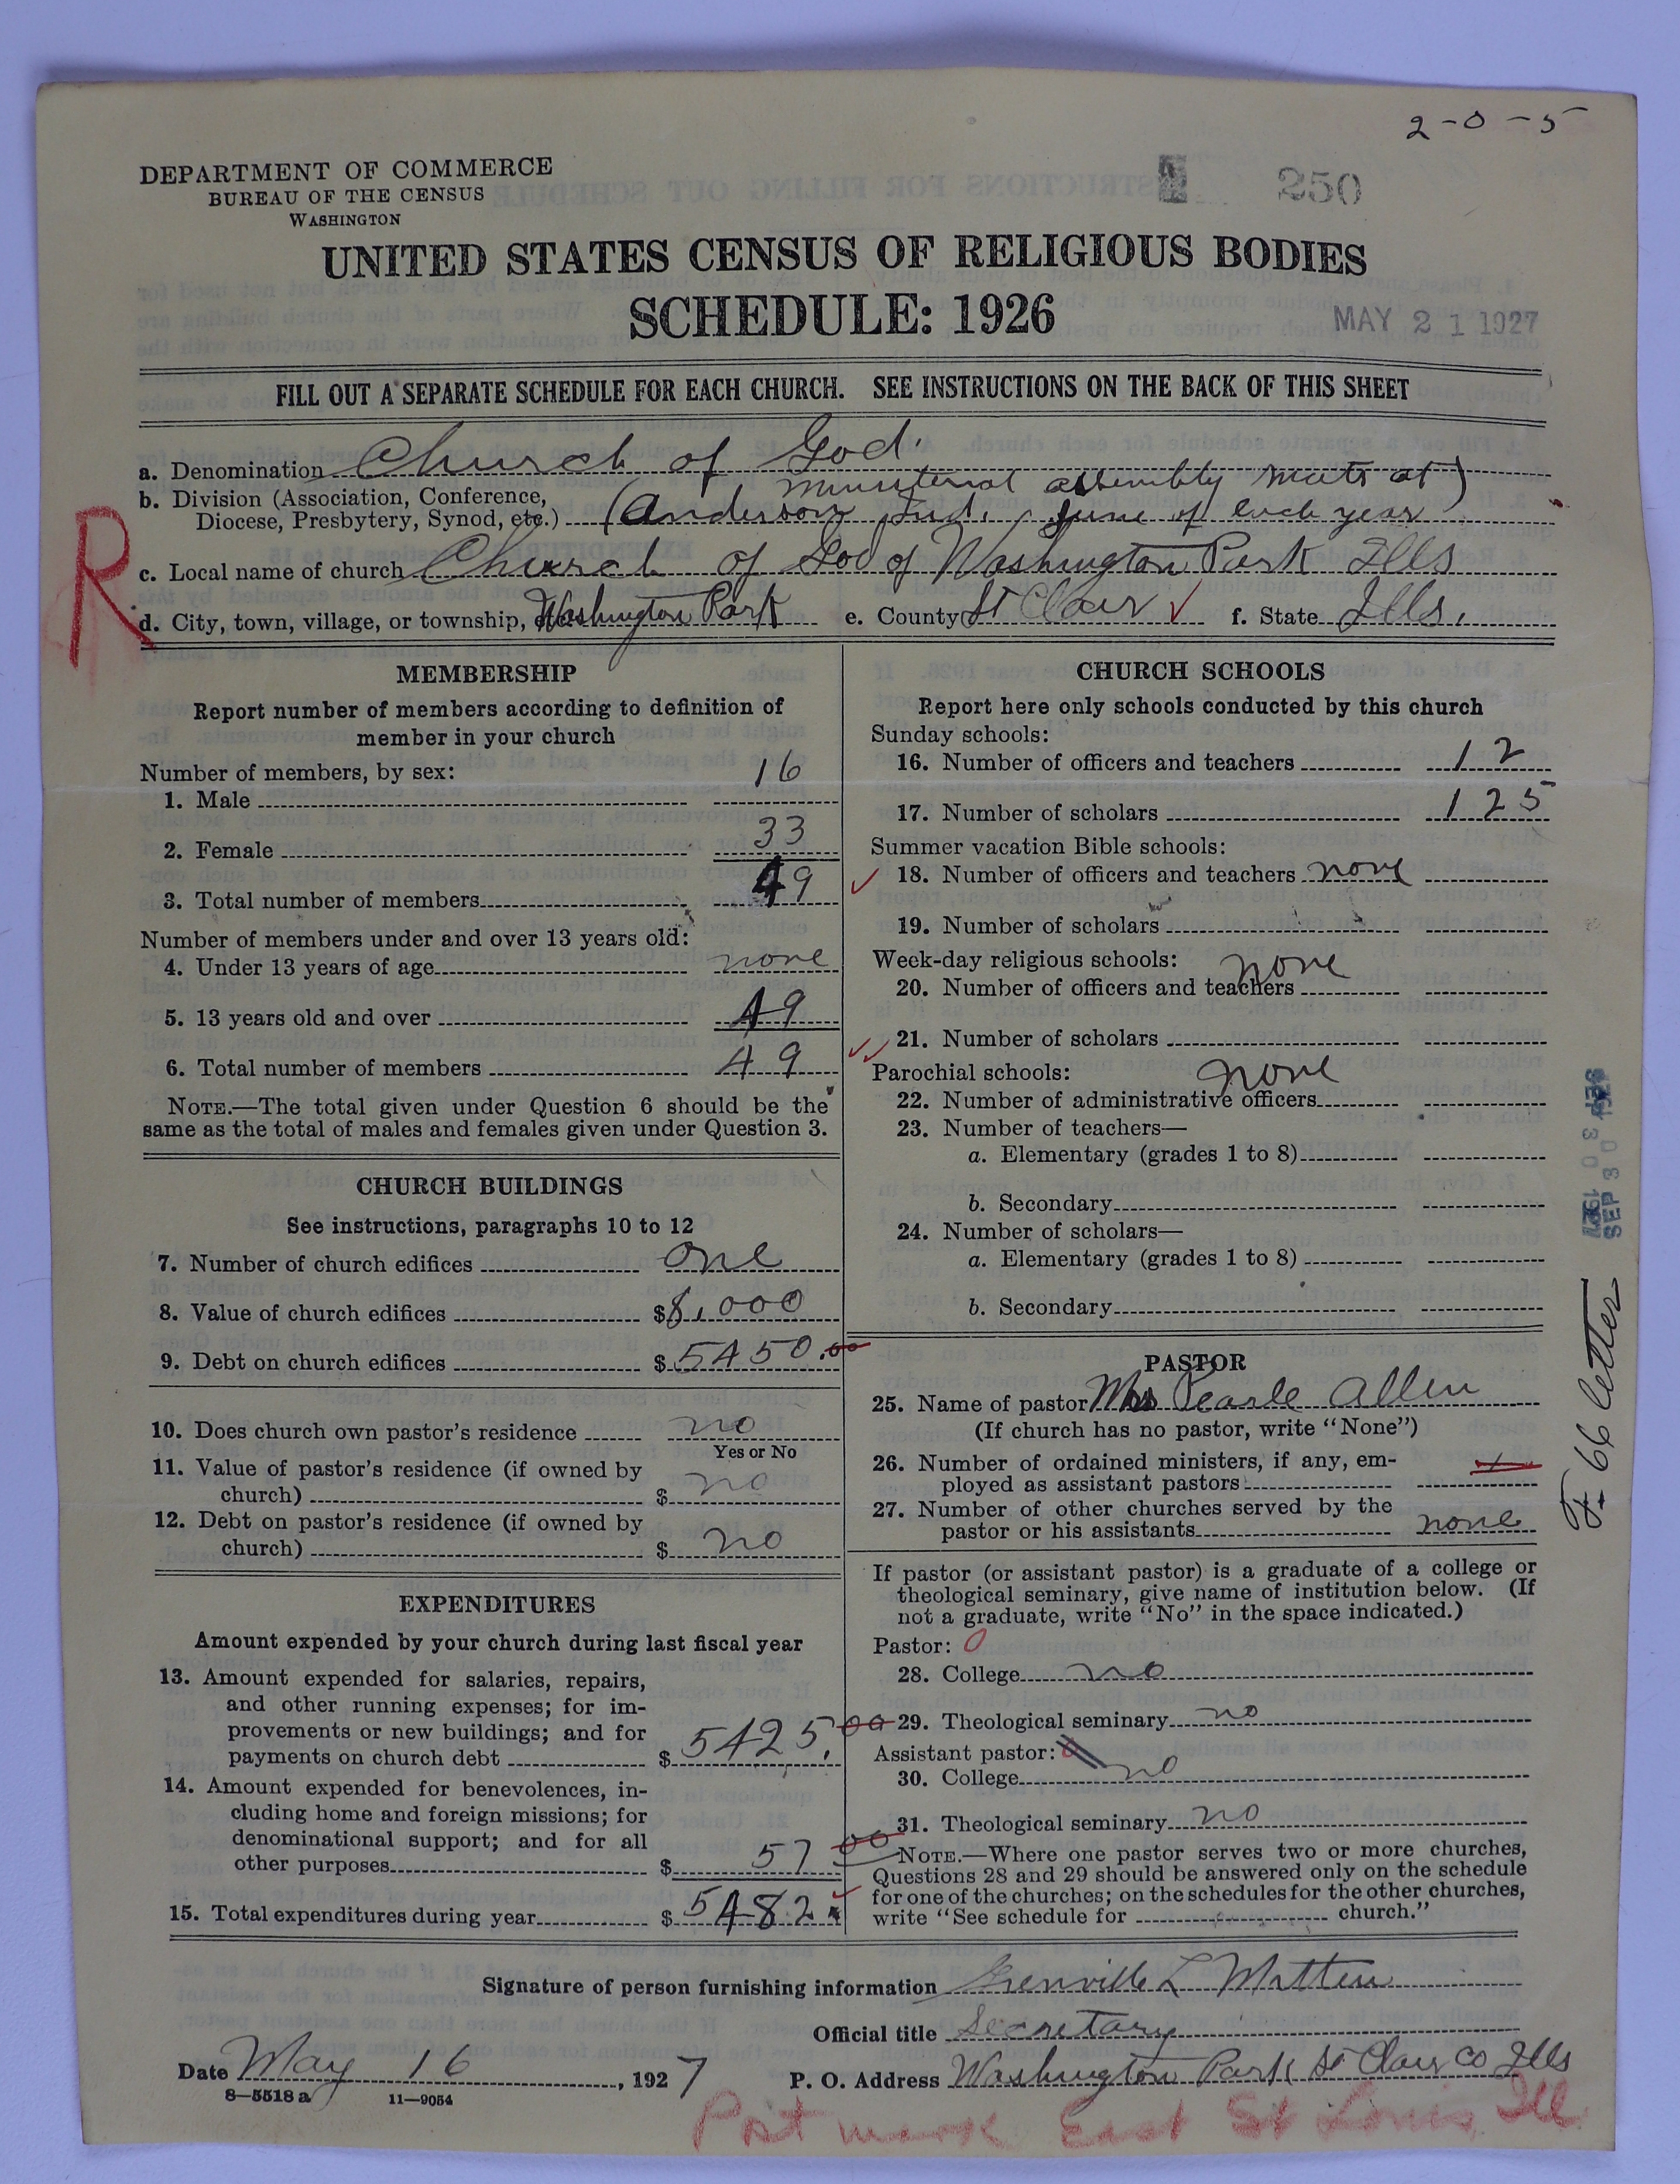 2-0-5
DEPARTMENT OF COMMERCE
BUREAU OF THE CENSUS
WASHINGTON
250
UNITED STATES CENSUS OF RELIGIOUS BODIES
SCHEDULE: 1926
MAY 21 1927
FILL OUT A SEPARATE SCHEDULE FOR EACH CHURCH. SEE INSTRUCTIONS ON THE BACK OF THIS SHEET
R
a. Denomination Church of God.
b. Division (Association, Conference, ministerial assembly meets at)
Diocese, Presbytery, Synod, etc.) (Anderson Ind. June of each year
c. Local name of church Church of God of Washington Park Ills
d. City, town, village, or township, etc. Washington Park e. County St Clair f. State Ills.
MEMBERSHIP
Report number of members according to definition of
member in your church
Number of members, by sex:
1. Male 16
2. Female 33
3. Total number of members 49
Number of members under and over 13 years old:
4. Under 13 years of age none
5. 13 years old and over 49
6. Total number of members 49
NOTE.—The total given under Question 6 should be the
same as the total of males and females given under Question 3.
CHURCH BUILDINGS
See instructions, paragraphs 10 to 12
7. Number of church edifices one
8. Value of church edifices $8,000
9. Debt on church edifices $5450.00
10. Does church own pastor's residence no
Yes or No
11. Value of pastor's residence (if owned by
church) $ no
12. Debt on pastor's residence (if owned by
church) $ no
EXPENDITURES
Amount expended by your church during last fiscal year
13. Amount expended for salaries, repairs,
and other running expenses; for im-
provements or new buildings; and for
payments on church debt $5425.00
14. Amount expended for benevolences, in-
cluding home and foreign missions; for
denominational support; and for all
other purposes $ 57 00
15. Total expenditures during year $5482
CHURCH SCHOOLS
Report here only schools conducted by this church
Sunday schools:
16. Number of officers and teachers 12
17. Number of scholars 125
Summer vacation Bible schools:
18. Number of officers and teachers none
19. Number of scholars
Week-day religious schools: none
20. Number of officers and teachers
21. Number of scholars
Parochial schools: none
22. Number of administrative officers
23. Number of teachers—
a. Elementary (grades 1 to 8)
b. Secondary
24. Number of scholars—
a. Elementary (grades 1 to 8)
b. Secondary
PASTOR
25. Name of pastor Mrs Pearle Allen
(If church has no pastor, write "None")
26. Number of ordained ministers, if any, em-
ployed as assistant pastors
27. Number of other churches served by the
pastor or his assistants none
If pastor (or assistant pastor) is a graduate of a college or
theological seminary, give name of institution below. (If
not a graduate, write "No" in the space indicated.)
Pastor: 0
28. College no
29. Theological seminary no
Assistant pastor:
30. College no
31. Theological seminary no
NOTE.—Where one pastor serves two or more churches,
Questions 28 and 29 should be answered only on the schedule
for one of the churches; on the schedules for the other churches,
write "See schedule for church."
SEP 30
F-66 letter
Signature of person furnishing information Grenville L Mitten
Official title Secretary
Date May 16, 1927 P. O. Address Washington Park St Clair Co Ills
8—5518a 11—9054
Post mark East St Louis, Ill.